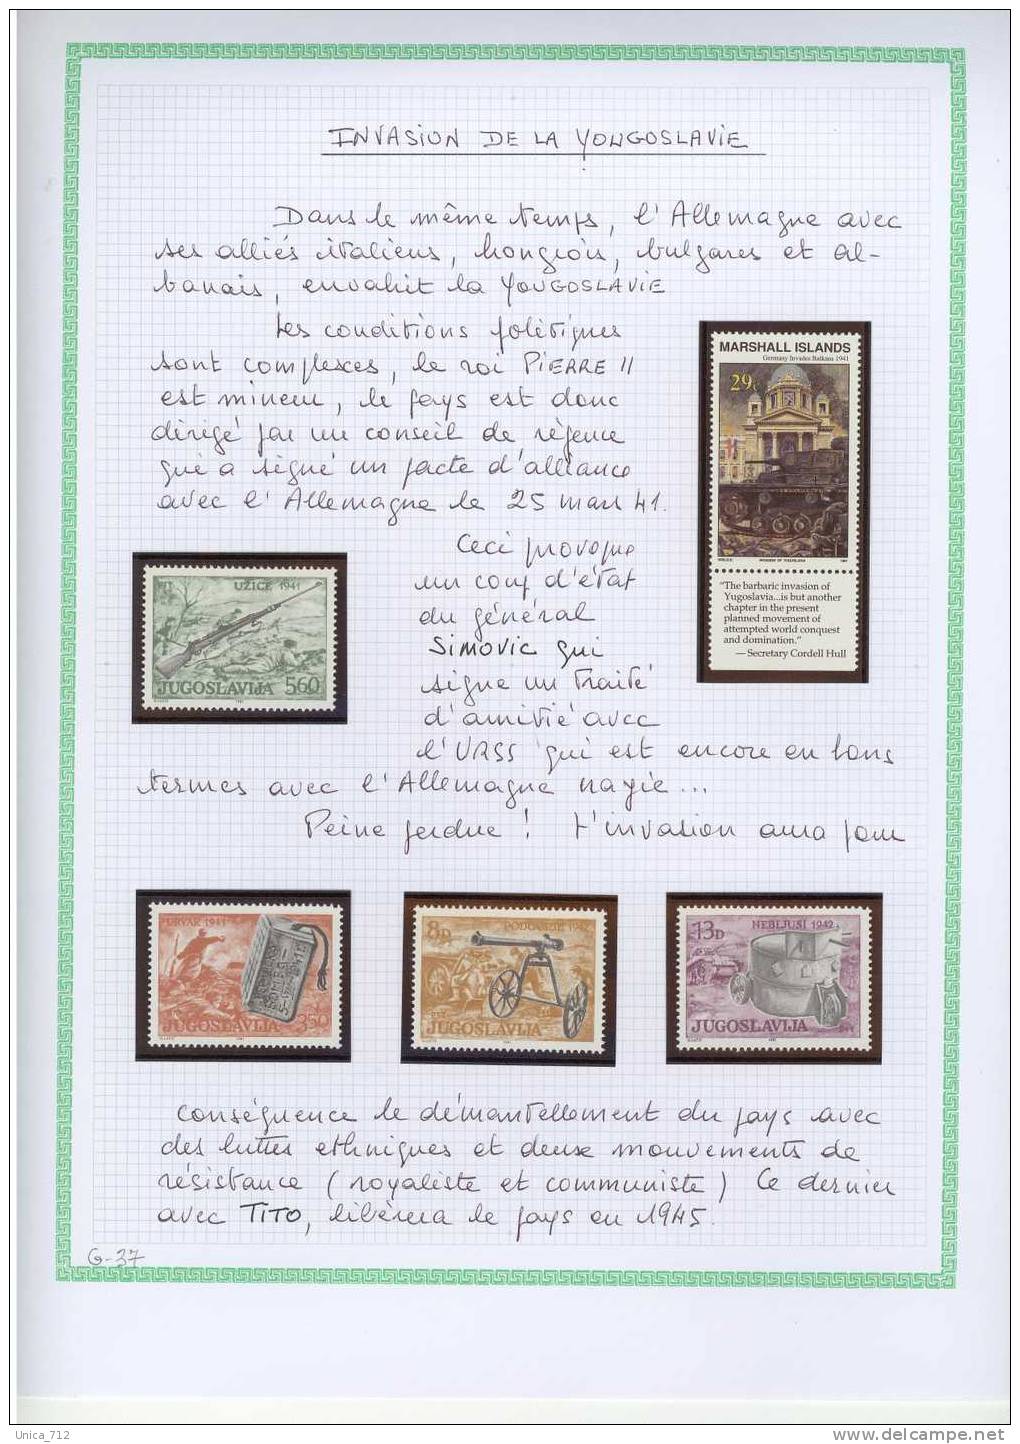 INVASION DE LA YOUGOSLAVIE
Dans le même temps, l'Allemagne avec
ses alliés italiens, hongrois, bulgares et al-
banais, envahit la YOUGOSLAVIE
Les conditions politiques
sont complexes, le roi PIERRE II
est mineur, le pays est donc
dirigé par un conseil de régence
qui a signé un pacte d'alliance
avec l'Allemagne le 25 mars 41.
MARSHALL ISLANDS
Germany Invades Balkans 1941
29c
"The barbaric invasion of
Yugoslavia...is but another
chapter in the present
planned movement of
attempted world conquest
and domination."
— Secretary Cordell Hull
Ceci provoque
un coup d'état
du général
SIMOVIC qui
signe un traité
d'amitié avec
l'URSS qui est encore en bons
termes avec l'Allemagne nazie...
UŽICE 1941
JUGOSLAVIJA 5.60
Peine perdue ! L'invasion aura pour
DRVAR 1941
JUGOSLAVIJA 3.50
8D
PODGRADE 1942
JUGOSLAVIJA
13D NEBLJUSI 1942
JUGOSLAVIJA
conséquence le démantellement du pays avec
des luttes ethniques et deux mouvements de
résistance (royaliste et communiste) Ce dernier
avec TITO, libérera le pays en 1945.
G-37
Unica_712
www.delcampe.net